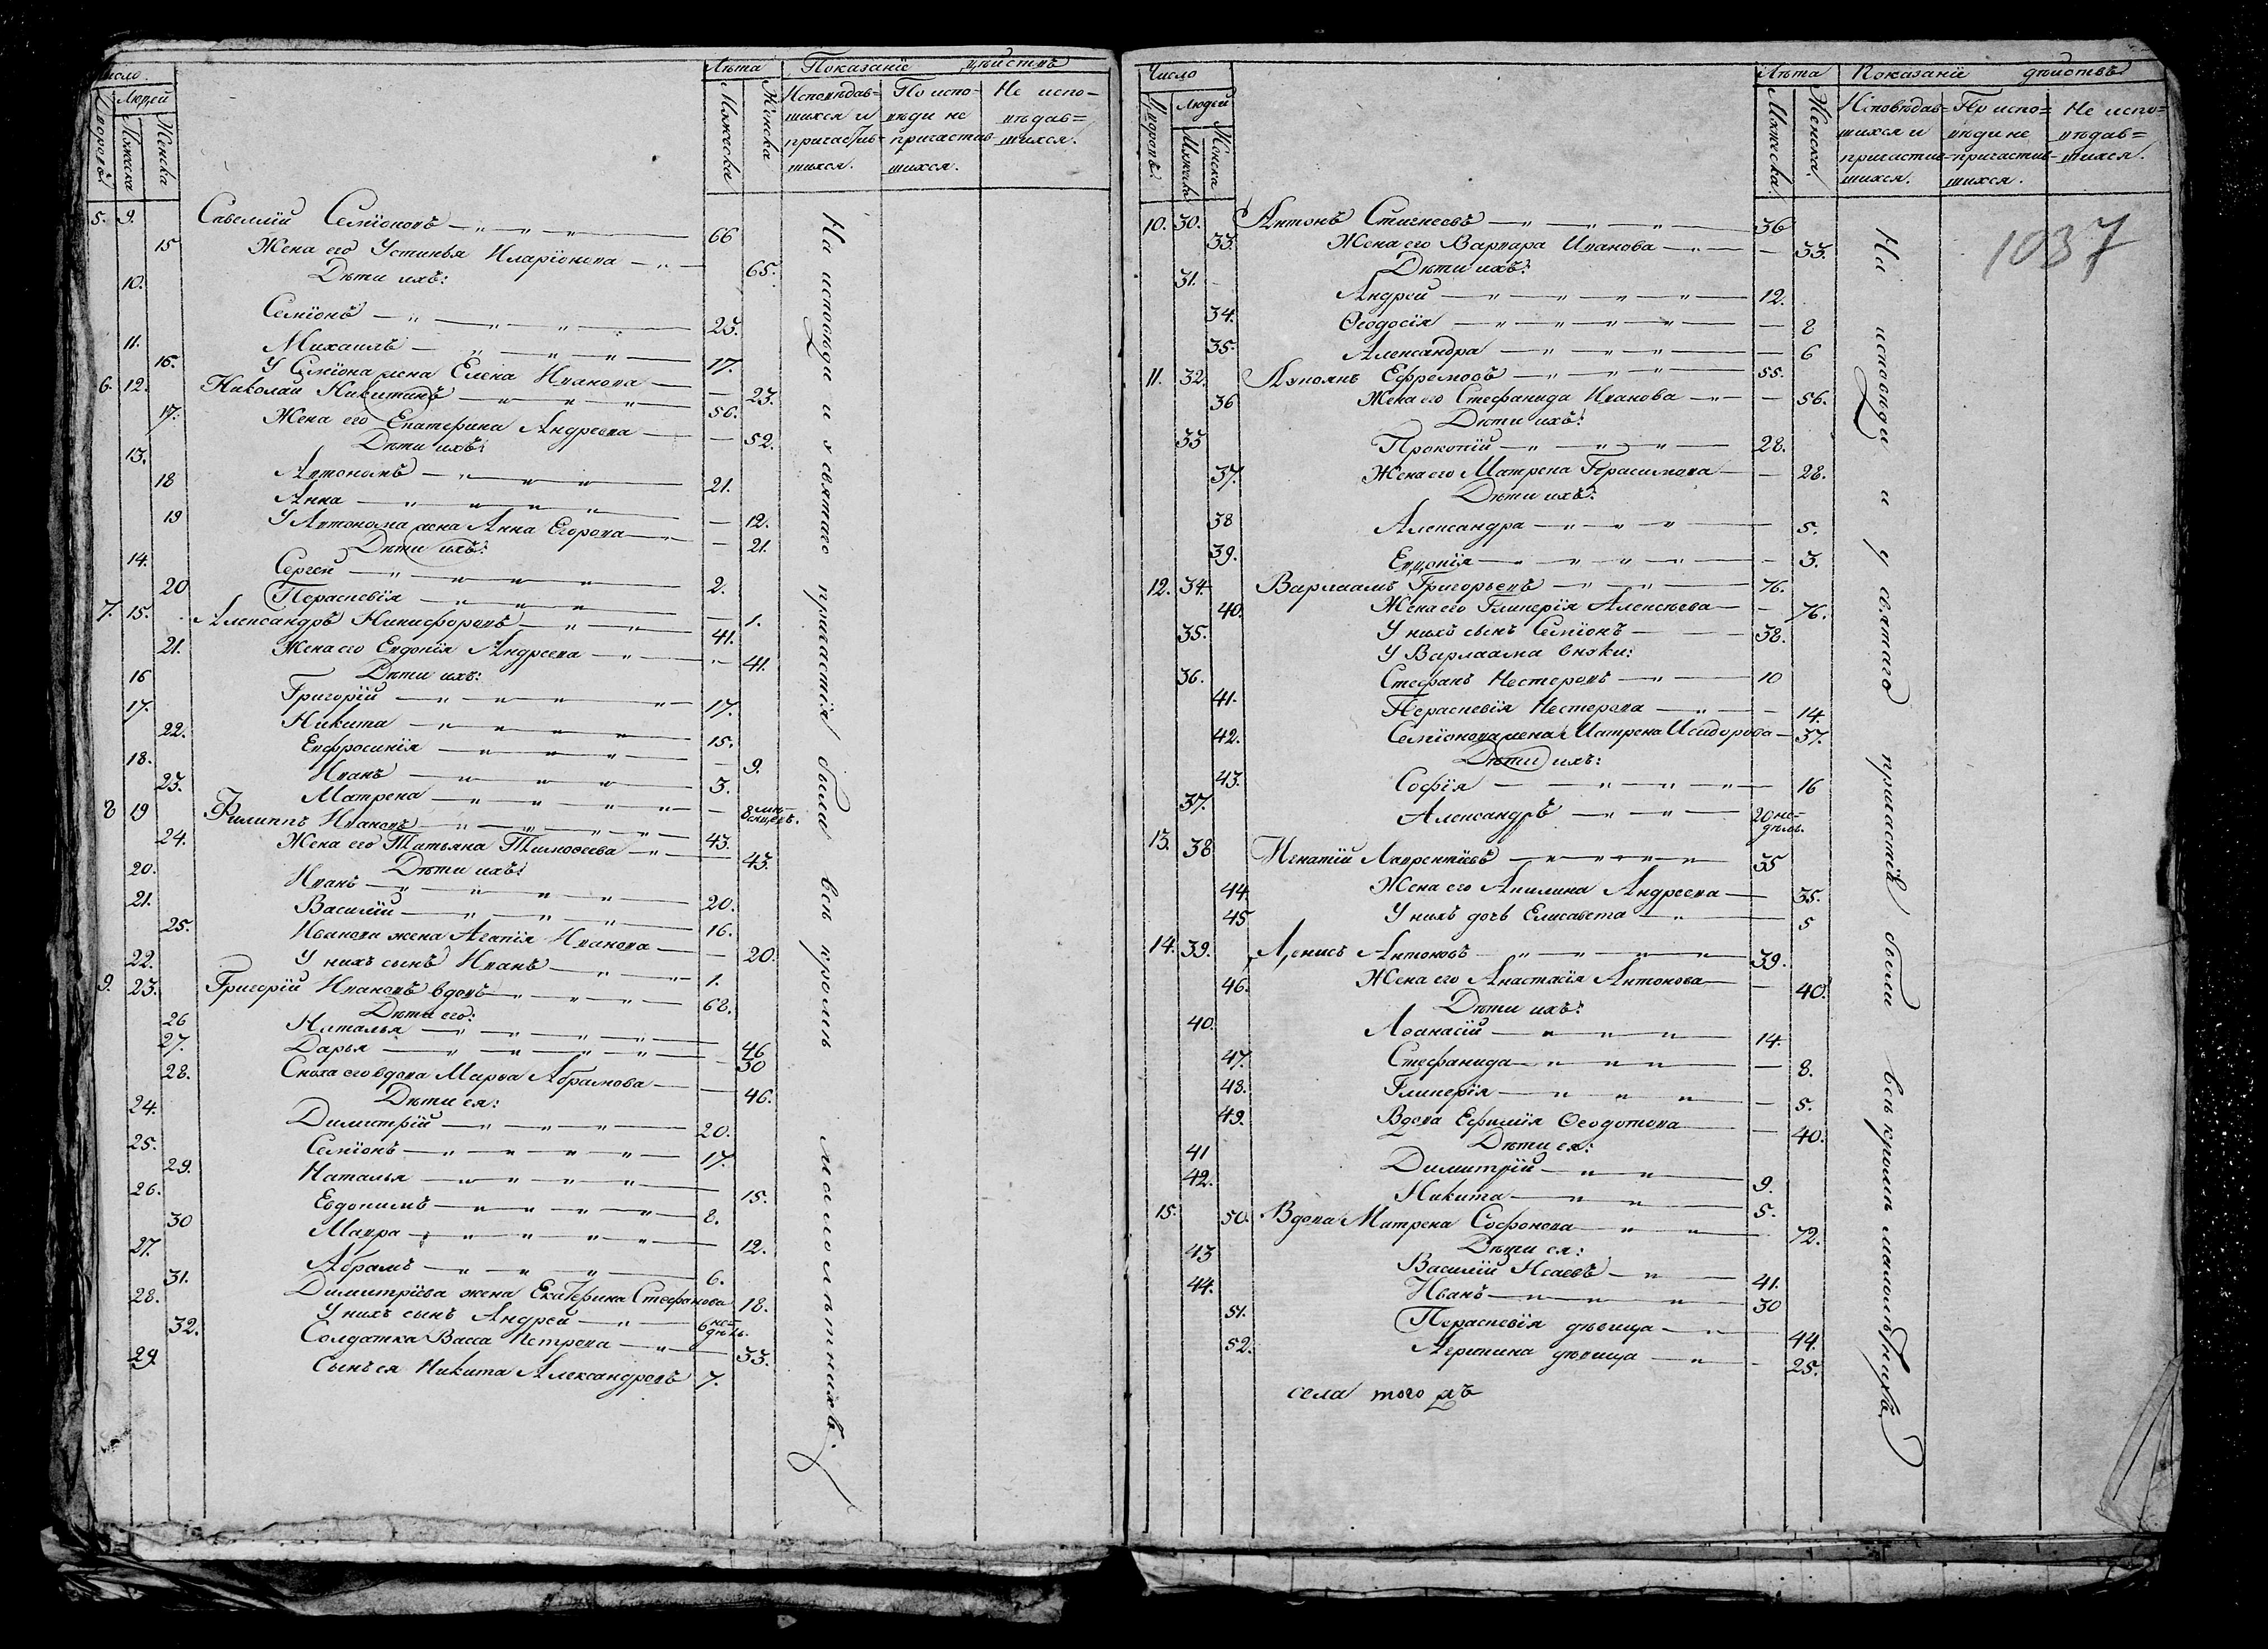 Число
Людей
Дворовъ
Мужеска
Женска
Лѣта
Мужеска
Женска
Показаніе дѣйствъ
Исповѣдав-
шихся и
причастив-
шихся.
По испо-
вѣди не
причастив-
шихся.
Не испо-
вѣдав=
шихся.
5. 9. Савеллій Семіоновъ 66
15 Жена его Устинья Иларіонова 65.
Дѣти ихъ:
10. Семіонъ 23.
11. Михаилъ 17.
16. У Семіона жена Елена Иванова 23.
6. 12. Николай Никитинъ 56.
17. Жена его Екатерина Андреева 52.
Дѣти ихъ:
13. Автономъ 21.
18 Анна 12.
19 У Автонома жена Анна Егорова 21.
Дѣти ихъ:
14. Сергей 2.
20 Параскевія 1.
7. 15. Александръ Никифоровъ 41.
21. Жена его Евдокія Андреева 41.
Дѣти ихъ:
16 Григорій 17.
17. Никита 15.
22. Евфросинія 9.
18. Иванъ 3.
23. Матрена 8 мѣ-
сяцовъ.
8 19 Филиппъ Ивановъ 43.
24. Жена его Татьяна Тимофеева 43.
Дѣти ихъ:
20. Иванъ 20.
21. Василій 16.
25. Иванова жена Агапія Иванова 20.
22. У нихъ сынъ Иванъ 1.
9. 23. Григорій Ивановъ вдовъ 68.
Дѣти его:
26 Наталья 46
27. Дарья 30
28. Сноха его вдова Марѳа Абрамова 46.
Дѣти ея:
24. Димитрій 20.
25. Семіонъ 17.
29. Наталья 15.
26. Евдокимъ 8.
30 Мавра 12.
27. Абрамъ 6.
31. Димитріева жена Екатерина Стефанова 18.
28. У нихъ сынъ Андрей 6 не-
дѣль.
32. Солдатка Васса Петрова 33.
29. Сынъ ея Никита Александровъ 7.
На исповѣди и у святаго причастія были всѣ кромѣ малолѣтнихъ.
Число
Людей
Дворовъ
Мужеска
Женска
Лѣта
Мужеска
Женска
Показаніе дѣйствъ
Исповѣдав=
шихся и
причастив-
шихся.
По испо=
вѣди не
причастив-
шихся.
Не испо=
вѣдав=
шихся.
1037
10. 30. Антонъ 36
33. Жена его Варвара Иванова 33.
Дѣти ихъ:
31. Андрей 12.
34. Ѳеодосія 8
35. Александра 6
11. 32. Лукоянъ Ефремовъ 55.
36 Жена его Стефанида Иванова 56.
Дѣти ихъ:
33 Прокопій 28.
37. Жена его Матрена Герасимова 28.
Дѣти ихъ:
38 Александра 5.
39. Евдокія 3.
12. 34. Варлаамъ Григорьевъ 76.
40. Жена его Гликерія Алексѣева 76.
35. У нихъ сынъ Семіонъ 38.
У Варлаама внуки:
36. Стефанъ Нестеровъ 10
41. Параскевія Нестерова 14.
42. Семіонова жена Матрена Исидорова 37.
Дѣти ихъ:
43. Софія 16
37. Александръ 20 не-
дѣль.
13. 38 Игнатій Лаврентіевъ 35
44. Жена его Акилина Андреева 35.
45 У нихъ дочь Елисавета 5
14. 39. Денисъ Антоновъ 39.
46. Жена его Анастасія Антонова 40.
Дѣти ихъ:
40. Аѳанасій 14.
47. Стефанида 8.
48. Гликерія 5.
49. Вдова Ефимія Ѳеодотова 40.
Дѣти ея:
41 Димитрій 9.
42. Никита 5.
15. 50. Вдова Матрена Софонова 72.
Дѣти ея:
43 Василій Исаевъ 41.
44. Иванъ 30
51. Параскевія дѣвица 44.
52. Агрипина дѣвица 25.
села того
На исповѣди и у святаго причастія были всѣ кромѣ малолѣтнихъ